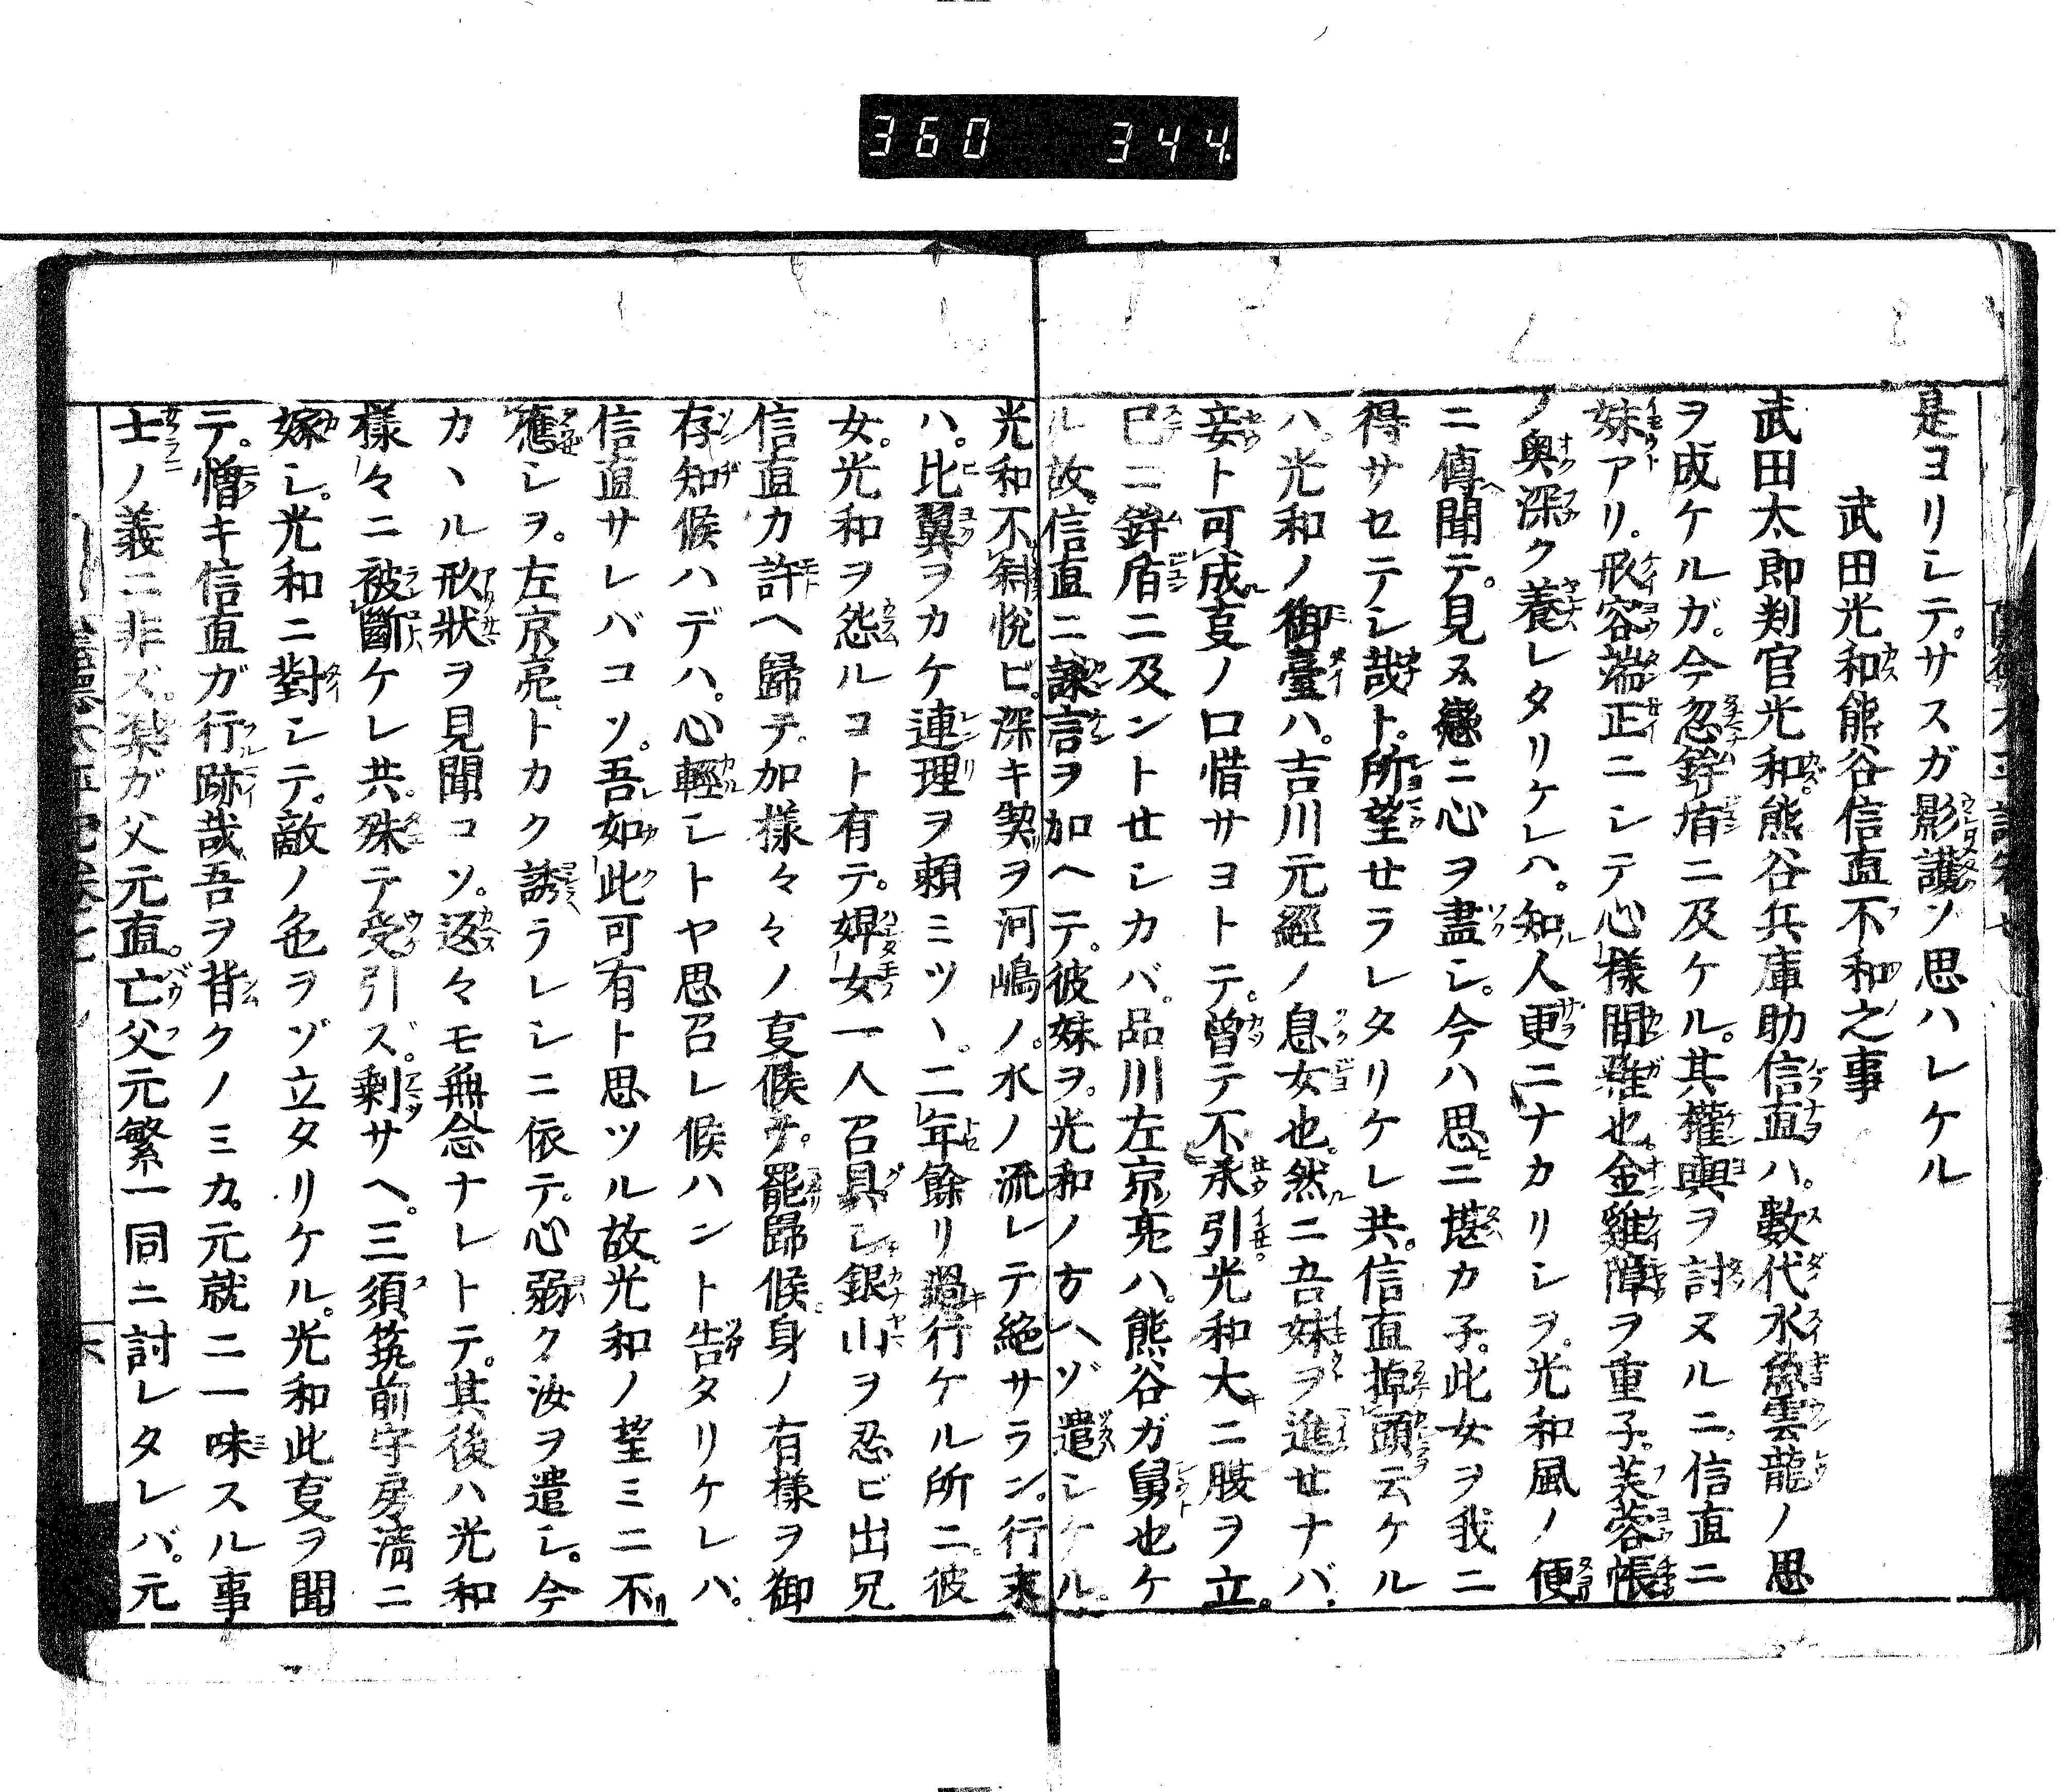 360 344
是ヨリシテ。サスガ影護ソ思ハレケル
武田光和熊谷信直不和之事
武田太郎判官光和。熊谷兵庫助信直ハ。數代水魚雲龍ノ思
ヲ成ケルガ。今忽鉾楯ニ及ケル。其權輿ヲ討ヌルニ。信直ニ
妹アリ。形容端正ニシテ心樣閒雅也。金雞障ヲ重子。芙蓉帳
ノ奥深ク養レタリケレハ。知人更ニナカリシヲ。光和風ノ便
ニ傳聞テ。見ヌ戀ニ心ヲ盡シ。今ハ思ニ堪カ子。此女ヲ我ニ
得サセテシ哉ト。所望セラレタリケレ共。信直掉頭云ケル
ハ。光和ノ御臺ハ。吉川元經ノ息女也。然ニ吾妹ヲ進セナバ。
妾ト可成叓ノ口惜サヨトテ。曽テ不承引光和大ニ腹ヲ立。
已ニ鉾盾ニ及ントセシカバ。品川左京亮ハ。熊谷ガ舅也ケ
ル故。信直ニ諫言ヲ加ヘテ。彼妹ヲ。光和ノ方ヘゾ遣シケル。
光和不斜悅ビ。深キ契ヲ河嶋ノ。水ノ流レテ絶サラン。行末
ハ。比翼ヲカケ連理ヲ頼ミツヽ。二年餘リ過行ケル所ニ。彼
女。光和ヲ怨ルコト有テ。婢女一人召具シ銀山ヲ忍ビ出兄
信直カ許ヘ歸テ。加樣々々ノ叓候テ。罷歸候身ノ有樣ヲ御
存知候ハデハ。心輕シトヤ思召レ候ハント告タリケレバ。
信直サレバコソ。吾如此可有ト思ツル故。光和ノ望ミニ不
應シヲ。左京亮トカク誘ラレシニ依テ。心弱ク汝ヲ遣シ。今
カヽル形狀ヲ見聞コソ。返々モ無念ナレトテ。其後ハ光和
樣々ニ被斷ケレ共。殊テ受引ズ。剩サヘ。三須筑前守房淸ニ
嫁シ。光和ニ對シテ。敵ノ色ヲゾ立タリケル。光和此叓ヲ聞
テ。憎キ信直ガ行跡哉吾ヲ背クノミカ。元就ニ一味スル事
士ノ義ニ非ズ。渠ガ父元直。亡父元繁一同ニ討レタレバ。元